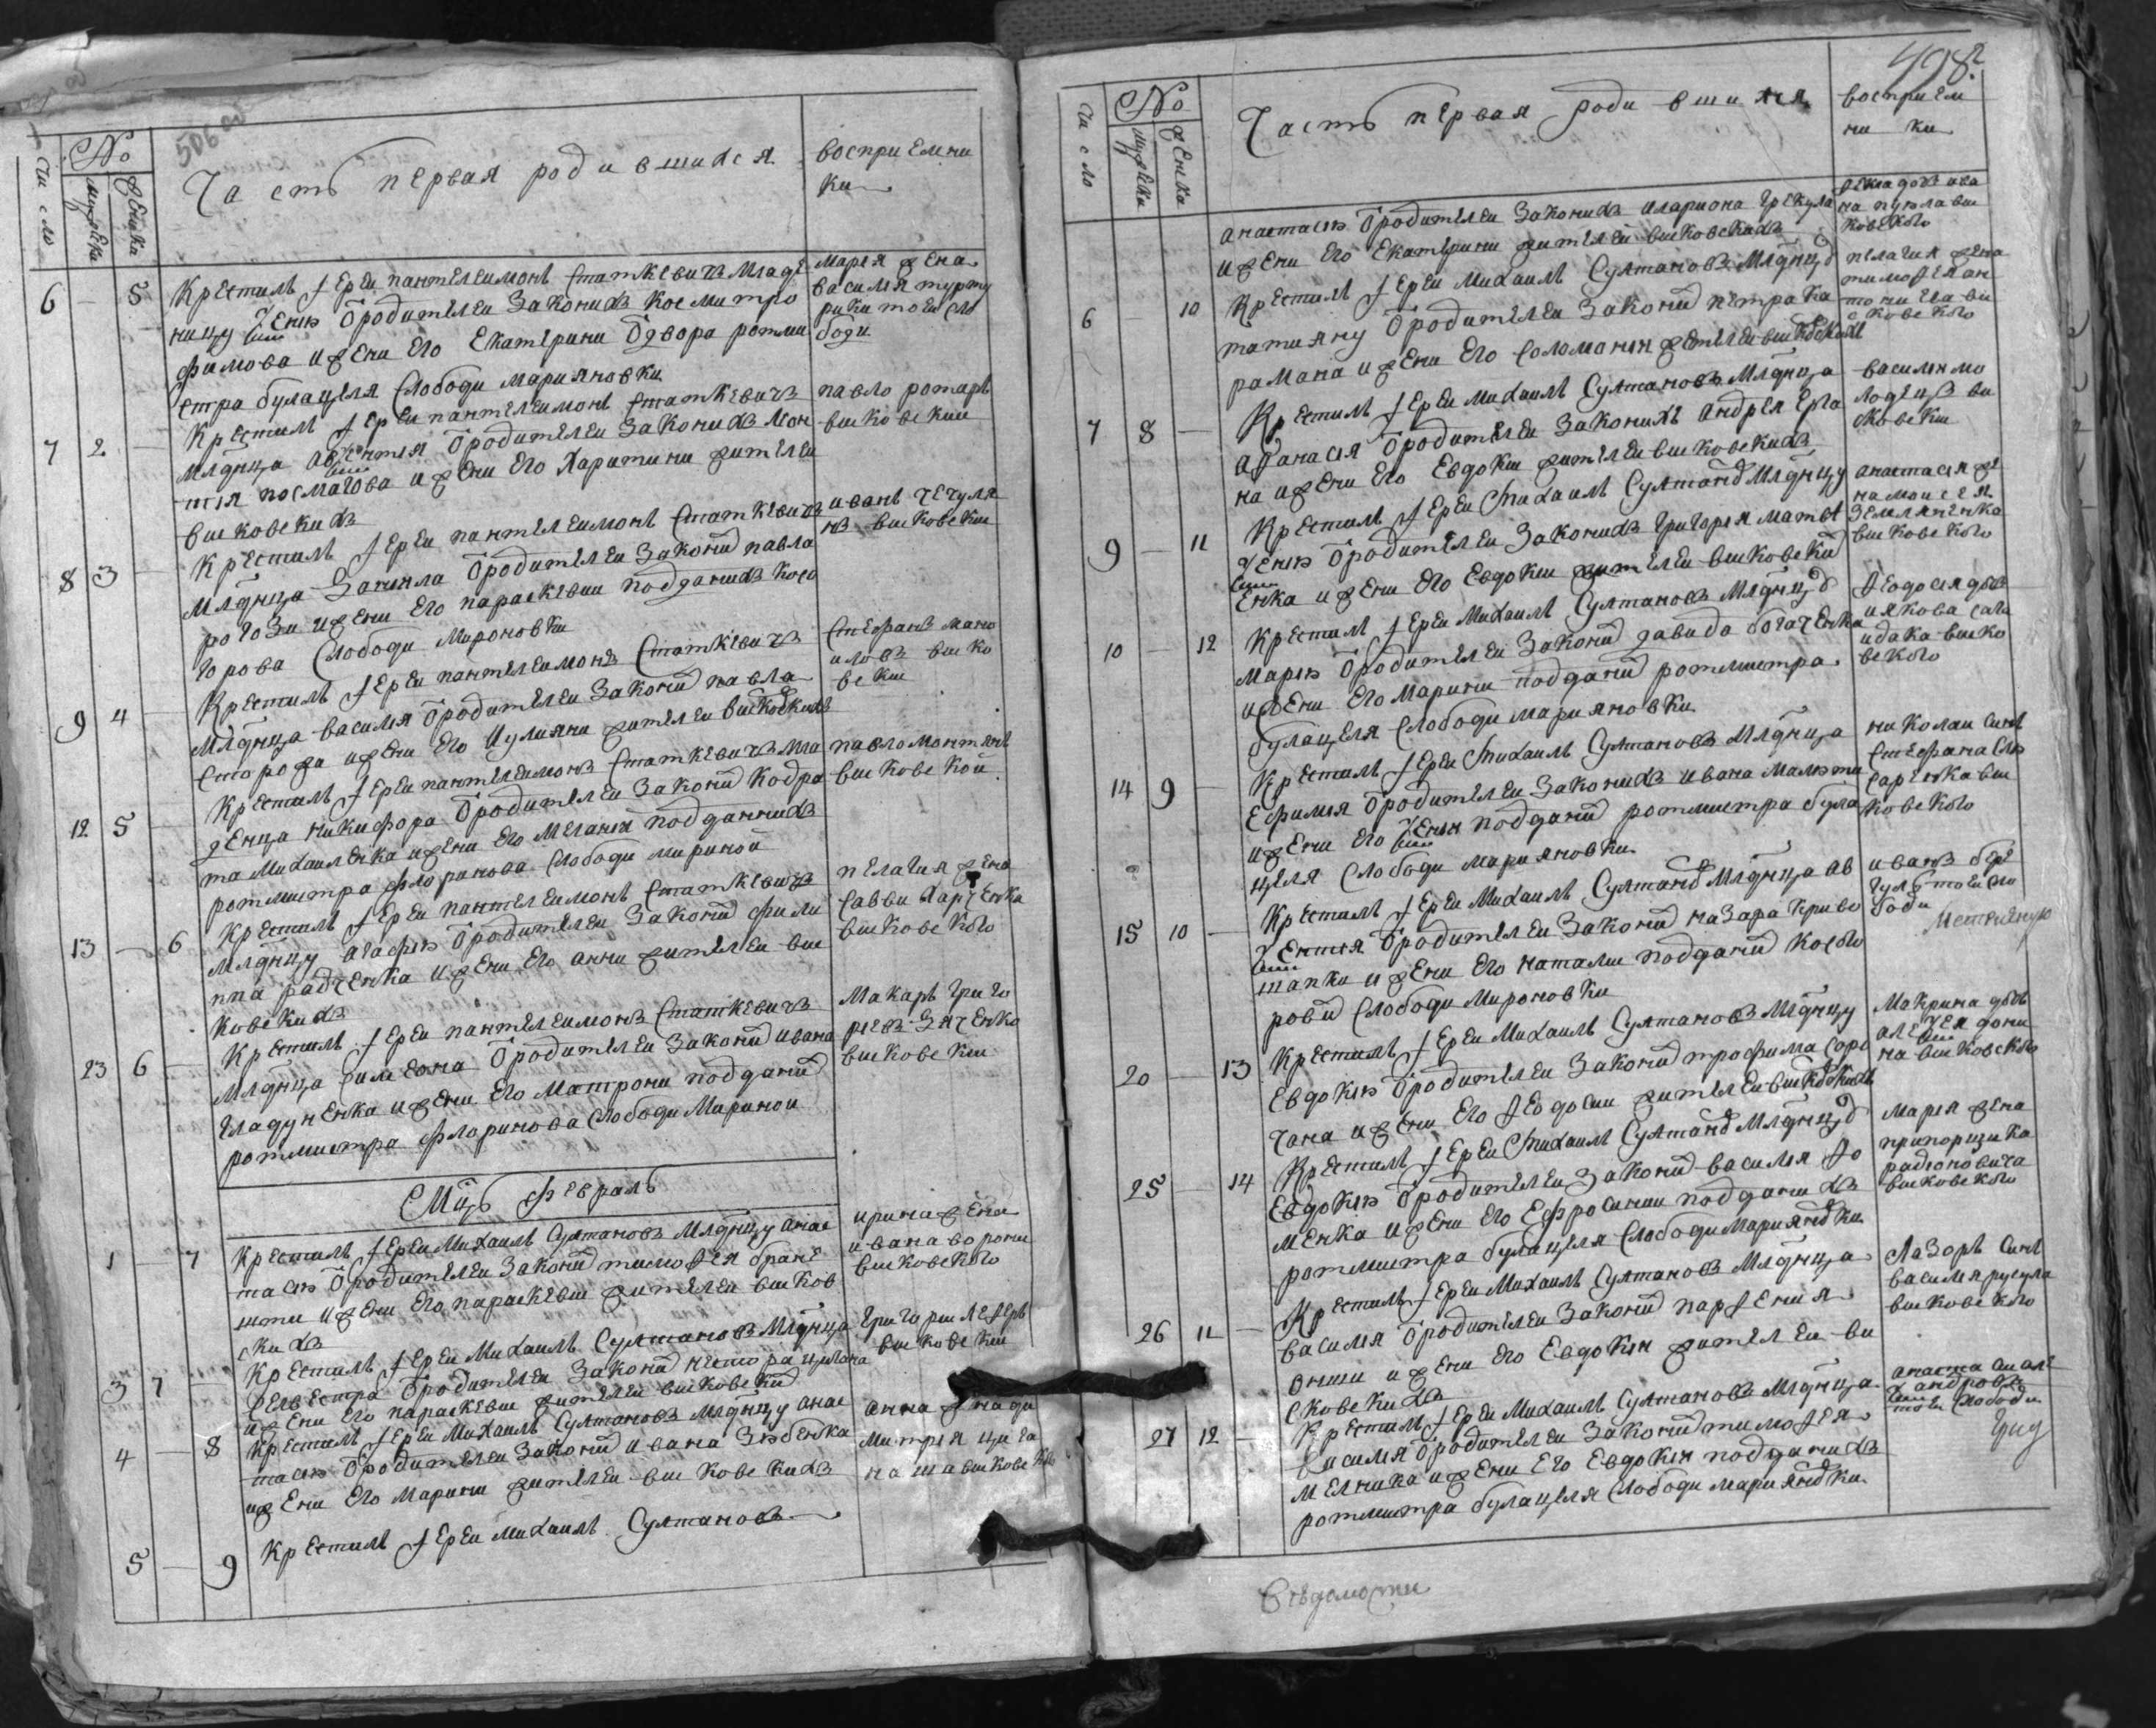 506 об
No
Число
мужеска
женска
Часть первая родившихся
восприемни
ки
6 — 5
Крестилъ Іереи пантелеимонъ Статкевичъ младе
ницу Ѯению Ѿродителеи Законихъ Косми тро
фимова и жени Его Екатерини Ѿдвора ротми
стра булацеля Слободи марияновки
мария жена
василия турту
рики тоеи сло
боди
7 2 —
Крестилъ Іереи пантелеимонъ Статкевичъ
млднца авѯентия Ѿродителеи Законихъ леон
тия посмагова и жени Его Харитини жителеи
висковскихъ
павло ротаръ
висковскии
8 3 —
Крестилъ Іереи пантелеимонъ Статкевичъ
млднца Даниила Ѿродителеи Законихъ павла
рогози и жени Его параскевии подданихъ Косо
горова Слободи Мироновки
иванъ чечуля
нъ висковскии
9 4 —
Крестилъ Іереи пантелеимонъ Статкевичъ
млднца василия Ѿродителеи Законихъ павла
Сторожа и жени Его Иулияни жителеи висковскихъ
Стефанъ мано
иловъ виско
вскии
12 5 —
Крестилъ Іереи пантелеимонъ Статкевичъ мла
денца никифора Ѿродителеи Законихъ Кодра
та Михаиленка и жени Его Мелании подданнихъ
ротмистра флоринова Слободи мириной
павло монтянъ
висковской
13 — 6
Крестилъ Іереи пантелеимонъ Статкевичъ
млдницу агафию Ѿродителеи Законихъ фили
ппа радченка и жени Его анни жителеи вис
ковскихъ
пелагия жена
Савви Харченка
висковского
23 6 —
Крестилъ Іереи пантелеимонъ Статкевичъ
млднца Симеона Ѿродителеи Законихъ ивана
гладуненка и жени Его Матрони подданихъ
ротмистра флоринова Слободи Мириной
Макаръ григо
риевъ Зятченко
висковскии
Мцъ февраль
1 — 7
Крестилъ Іереи Михаилъ Султановъ млдницу анас
тасию Ѿродителеи Законихъ тимофея бране
шти и жени Его параскевии жителеи висков
скихъ
ирина жена
ивана ворони
висковского
3 7 —
Крестилъ Іереи Михаилъ Султановъ млднца
Селвестра Ѿродителеи Законихъ нестора
и жени Его параскевии жителеи висковскихъ
григории лефтеръ
висковскии
4 — 8
Крестилъ Іереи Михаилъ Султановъ млдницу анас
тасию Ѿродителеи Законихъ ивана Зюбенка
и жени Его марини жителеи висковскихъ
анна жена ди
митрия цига
наша висковско
5 — 9
Крестилъ Іереи Михаилъ Султановъ
498
No
Число
мужеска
женска
Часть первая родившихся
восприем
ники
анастасию Ѿродителеи Законихъ илариона грекула
и жени Его Екатерини жителей висковскихъ
ива
на
ковского
6 10
Крестилъ Іереи Михаилъ Султановъ млдницу
татияну Ѿродителеи Законихъ петра Ка
рамана и жени Его Соломонии жителеи висковскихъ
пелагия жена
тимофея ан
тониева ви
сковского
7 8 —
Крестилъ Іереи Михаилъ Султановъ млднца
афанасия Ѿродителеи Законихъ андрея Ерга
на и жени Его Евдокии жителеи висковскихъ
василии мо
лодецъ ви
сковскии
9 — 11
Крестилъ Іереи Михаилъ Султановъ млдницу
Ѯению Ѿродителеи Законихъ григория матве
енка и жени Его Евдокии жителеи висковскихъ
анастасия же
на моисея
Земляненка
висковского
10 — 12
Крестилъ Іереи Михаилъ Султановъ млдницу
марию Ѿродителеи Законихъ давида богаченка
и жени Его марини подданихъ ротмистра
булацеля Слободи марияновки
феодосия дочь
иякова Сага
идака виско
вского
14 9 —
Крестилъ Іереи Михаилъ Султановъ млднца
Ефимия Ѿродителеи Законихъ ивана малюти
и жени Его Ѯении подданихъ ротмистра була
целя Слободи марияновки
николаи Синъ
Стефана Слю
саренка вис
ковского
15 10 —
Крестилъ Іереи Михаилъ Султановъ млднца ав
Ѯентия Ѿродителеи Законихъ назара Криво
шапки и жени Его наталии подданихъ Косого
ровихъ Слободи мироновки
иванъ бере
гуля тоеи сло
боди
20 — 13
Крестилъ Іереи Михаилъ Султановъ млдницу
Евдокию Ѿродителеи Законихъ трофима Соро
чана и жени Его феодосии жителеи висковскихъ
Макрина дочь
алеѯея дони
на висковского
25 — 14
Крестилъ Іереи Михаилъ Султановъ млдницу
Евдокию Ѿродителеи Законихъ василия фо
менка и жени Его Ефросинии подданихъ
ротмистра булацеля Слободи марияновки
мария жена
прапорщика
радионовича
висковского
26 11 —
Крестилъ Іереи Михаилъ Султановъ млднца
василия Ѿродителеи Законихъ парфения
онии и жени Его Евдокии жителеи ви
сковскихъ
Лазоръ Синъ
василия русула
висковского
27 12 —
Крестилъ Іереи Михаилъ Султановъ млднца
василия Ѿродителеи Законихъ тимофея
мелника и жени Его Евдокии подданихъ
ротмистра булацеля Слободи марияновки
анастасия але
Ѯандрова
тоеи Слободи